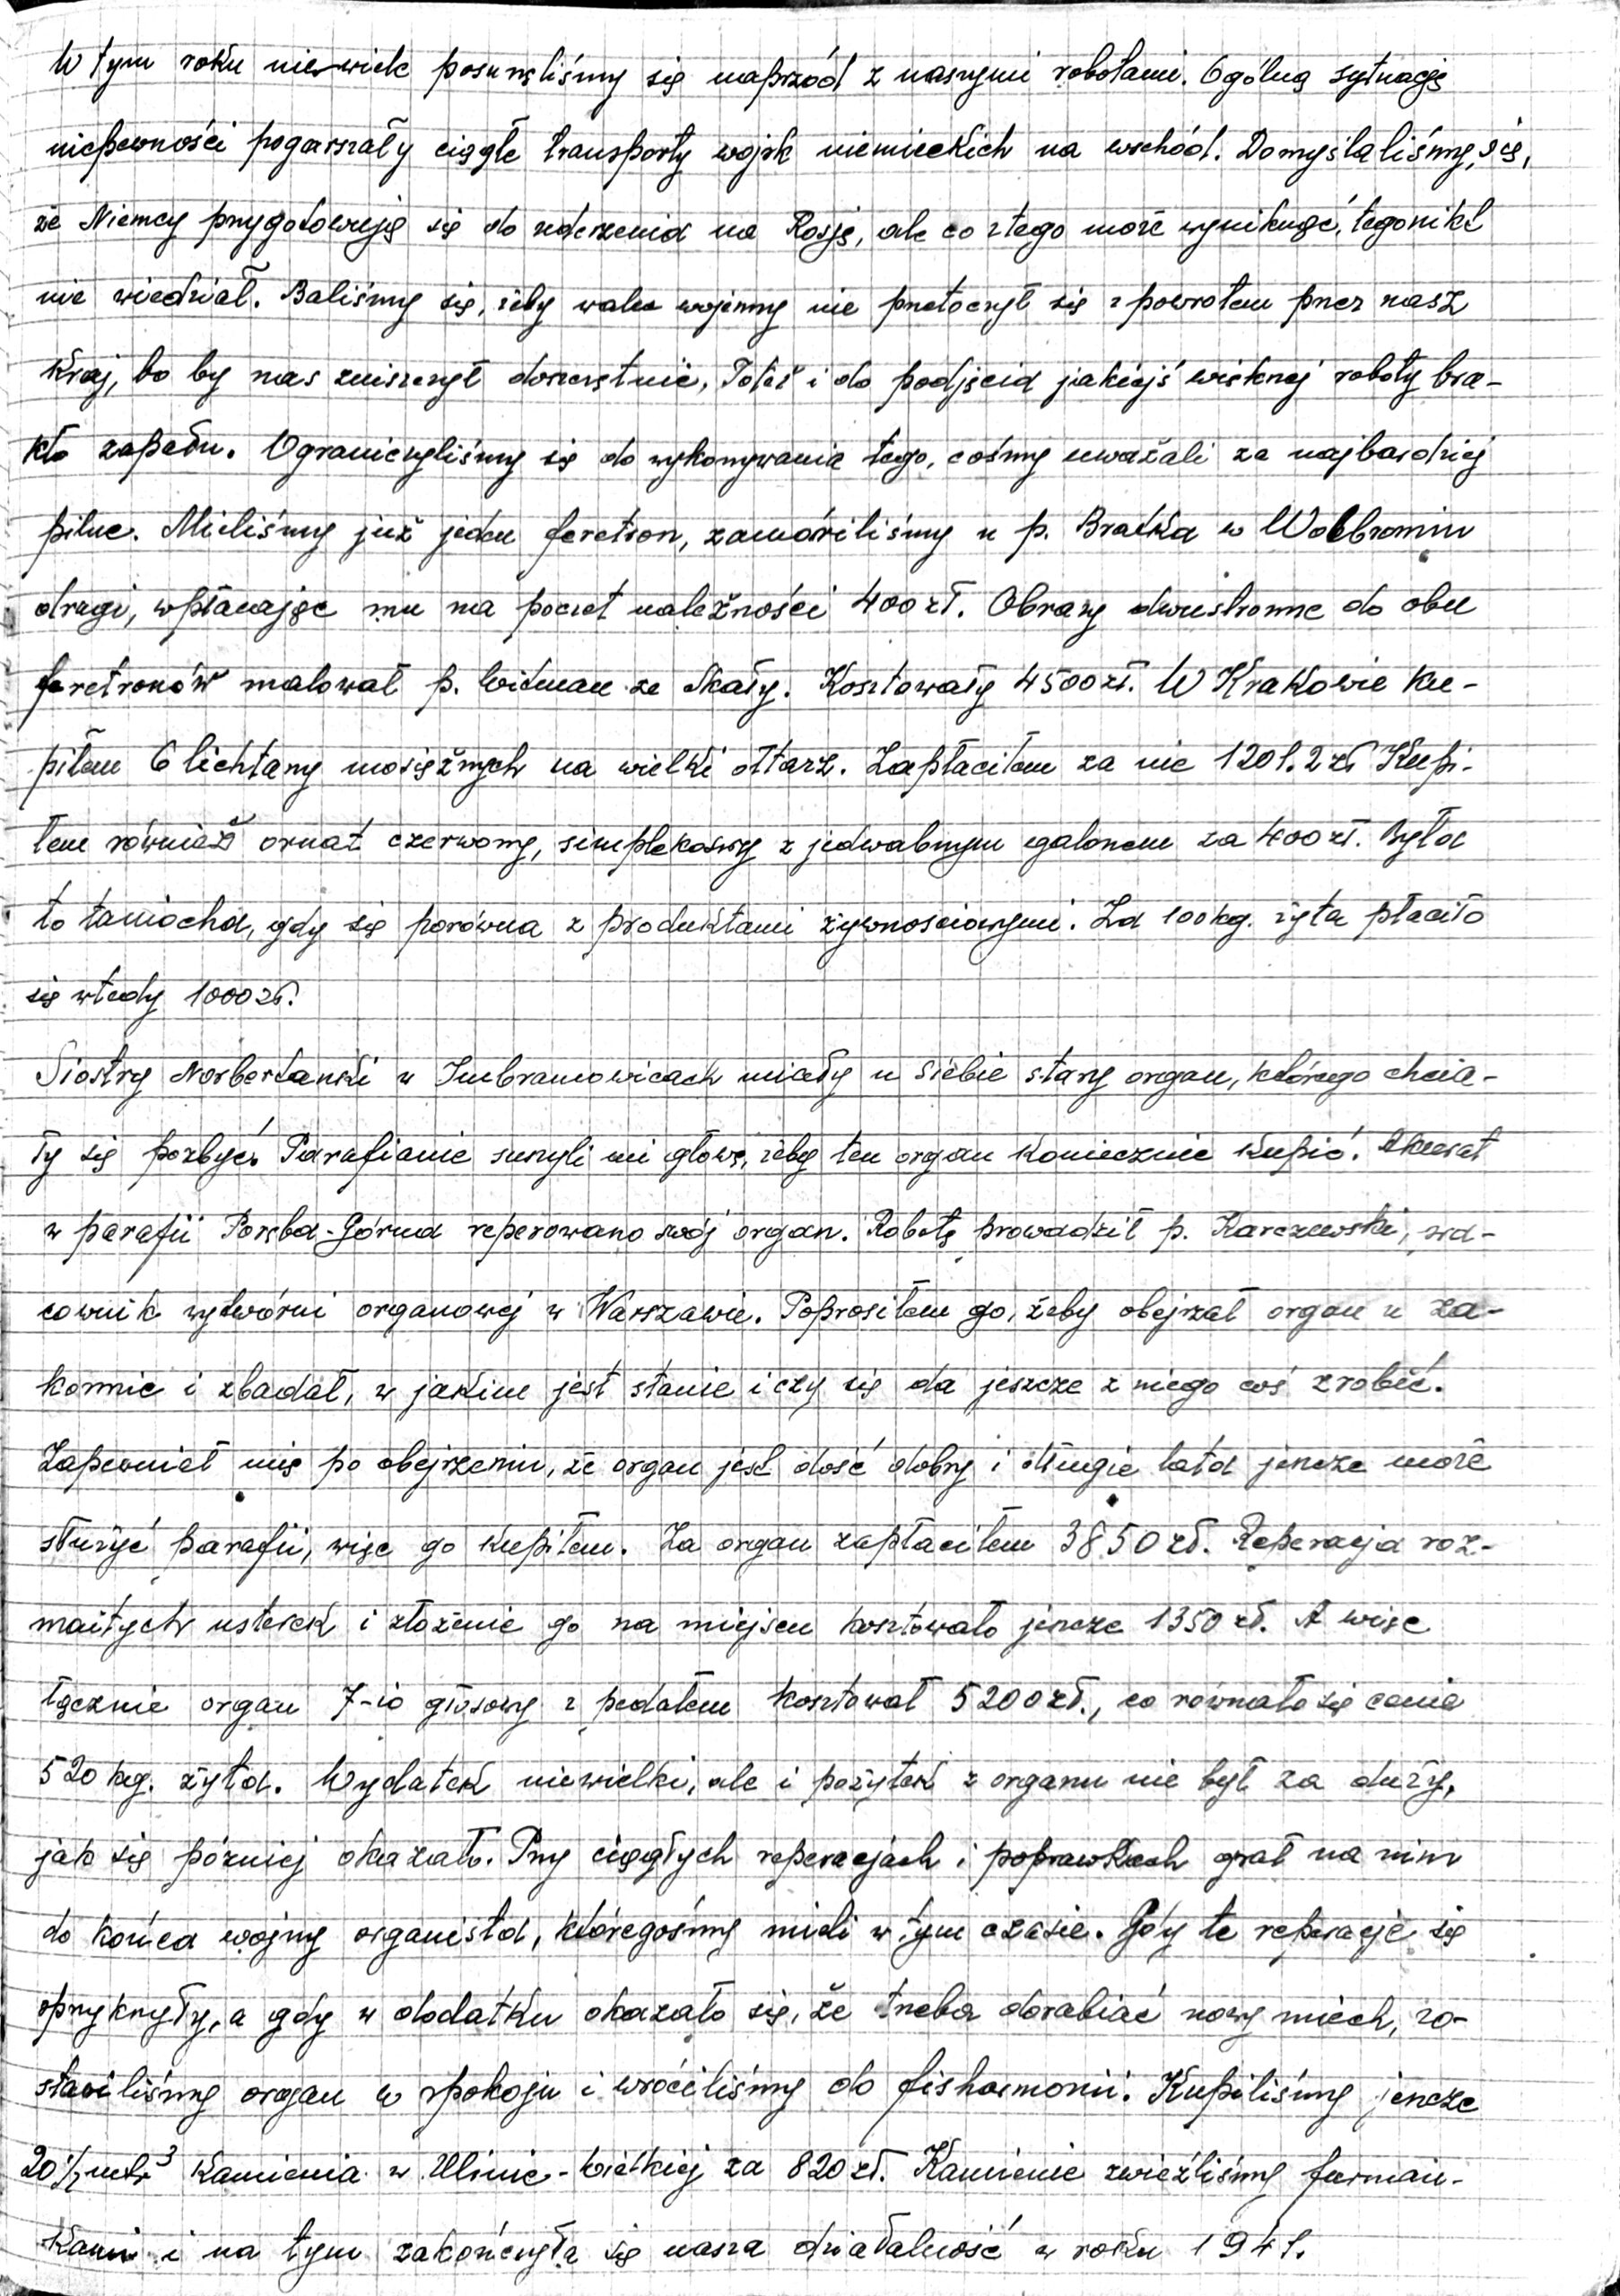 W tym roku niewiele posunęliśmy się naprzód z naszymi robotami. Ogólną sytuację
niepewności pogarszały ciągłe transporty wojsk niemieckich na wschód. Domyślaliśmy się,
że Niemcy przygotowują się do uderzenia na Rosję, ale co z tego może wyniknąć, tego nikt
nie wiedział. Baliśmy się, żeby walec wojenny nie przetoczył się z powrotem przez nasz
kraj, bo by nas zniszczył doszczętnie. Toteż i do podjęcia jakiejś większej roboty bra-
kło zapału. Ograniczyliśmy się do wykonywania tego, cośmy uważali za najbardziej
pilne. Mieliśmy już jeden feretron, zamówiliśmy u p. Bratka w Wolbromiu
drugi, wpłacając mu na poczet należności 400 zł. Obrazy dwustronne do obu
feretronów malował p. Widman ze Skały. Kosztowały 4500 zł. W Krakowie ku-
piłem 6 lichtarzy mosiężnych na wielki ołtarz. Zapłaciłem za nie 1201.2 zł Kupi-
łem również ornat czerwony, simpleksowy z jedwabnym galonem za 400 zł. Była
to taniocha, gdy się porówna z produktami żywnościowymi. Za 100 kg. żyta płaciło
się wtedy 1000 zł.
Siostry Norbertanki w Imbramowicach miały u siebie stary organ, którego chcia-
ły się pozbyć. Parafianie suszyli mi głowę, żeby ten organ koniecznie kupić. Akurat
w parafii Poręba-Górna reperowano swój organ. Robotę prowadził p. Karczewski, pra-
cownik wytwórni organowej w Warszawie. Poprosiłem go, żeby obejrzał organ w za-
konnie i zbadał, w jakim jest stanie i czy się da jeszcze z niego coś zrobić.
Zapewniał mię po obejrzeniu, że organ jest dość dobry i długie lata jeszcze może
służyć parafii, więc go kupiłem. Za organ zapłaciłem 3850 zł. Reperacja roz-
maitych usterek i złożenie go na miejscu kosztowało jeszcze 1350 zł. A więc
łącznie organ 7-io głosowy z pedałem kosztował 5200 zł., co równało się cenie
520 kg. żyta. Wydatek niewielki, ale i pożytek z organu nie był za duży,
jak się później okazało. Przy ciągłych reperacjach i poprawkach grał na nim
do końca wojny organista, któregośmy mieli w tym czasie. Gdy te reperacje się
sprzykrzyły, a gdy w dodatku okazało się, że trzeba dorabiać nowy miech, zo-
stawiliśmy organ w spokoju i wróciliśmy do fisharmonii. Kupiliśmy jeszcze
20 1/2 mtr³ kamienia w Ulinie-Wielkiej za 820 zł. Kamienie zwieźliśmy furman-
kami i na tym zakończyła się nasza działalność w roku 1941.